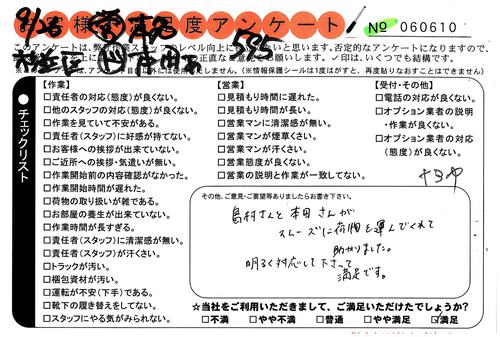 お客様満足度アンケート
№ 060610
9/26
583
このアンケートは、弊
のレベル向上に
いと思います。否定的なアンケートになりますので、
正直な
お願いします。✓印は、いくつでも結構です。
使いません。(※情報保護シールは1度はがすと、再度貼りなおすことはできません)
●チェックリスト
【作業】
□責任者の対応(態度)が良くない。
□他のスタッフの対応(態度)が良くない。
□作業を見ていて不安がある。
□責任者(スタッフ)に好感が持てない。
□お客様への挨拶が出来ていない。
□ご近所への挨拶・気遣いが無い。
□作業開始前の内容確認がなかった。
□作業開始時間が遅れた。
□荷物の取り扱いが雑である。
□お部屋の養生が出来ていない。
□作業時間が長すぎる。
□責任者(スタッフ)に清潔感が無い。
□責任者(スタッフ)が汗くさい。
□トラックが汚い。
□梱包資材が汚い。
□運転が不安(下手)である。
□靴下の履き替えをしてない。
□スタッフにやる気がみられない。
【営業】
□見積もり時間に遅れた。
□見積もり時間が長い。
□営業マンに清潔感が無い。
□営業マンが煙草くさい。
□営業マンが汗くさい。
□営業態度が良くない。
□営業の説明と作業が一致してない。
【受付・その他】
□電話の対応が良くない。
□オプション業者の説明
・作業が良くない。
□オプション業者の対応
(態度)が良くない。
その他、ご意見・ご要望等ありましたらお書き下さい。
島村さんと本田さんが
スムーズに荷物を運んでくれて
助かりました。
明るく対応して下さって
満足です。
☆当社をご利用いただきまして、ご満足いただけたでしょうか?
□不満 □やや不満 □普通 □やや満足 ☑満足